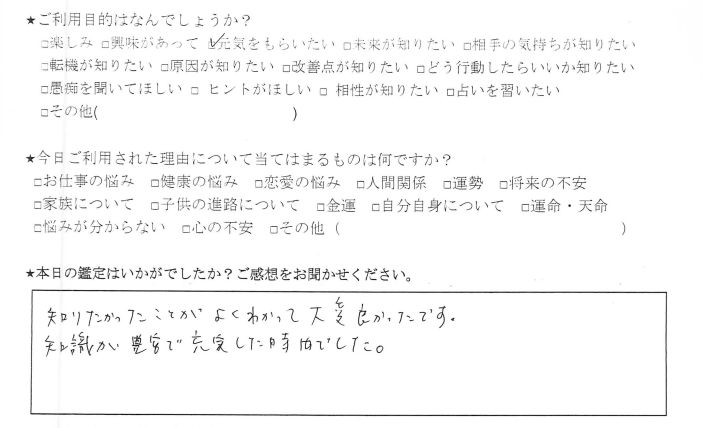 ★ご利用目的はなんでしょうか？
□楽しみ □興味があって ☑元気をもらいたい □未来が知りたい □相手の気持ちが知りたい
□転機が知りたい □原因が知りたい □改善点が知りたい □どう行動したらいいか知りたい
□愚痴を聞いてほしい □ ヒントがほしい □ 相性が知りたい □占いを習いたい
□その他( )
★今日ご利用された理由について当てはまるものは何ですか？
□お仕事の悩み □健康の悩み □恋愛の悩み □人間関係 □運勢 □将来の不安
□家族について □子供の進路について □金運 □自分自身について □運命・天命
□悩みが分からない □心の不安 □その他（ ）
★本日の鑑定はいかがでしたか？ご感想をお聞かせください。
知りたかったことがよくわかって大変良かったです。
知識が豊富で充実した時間でした。